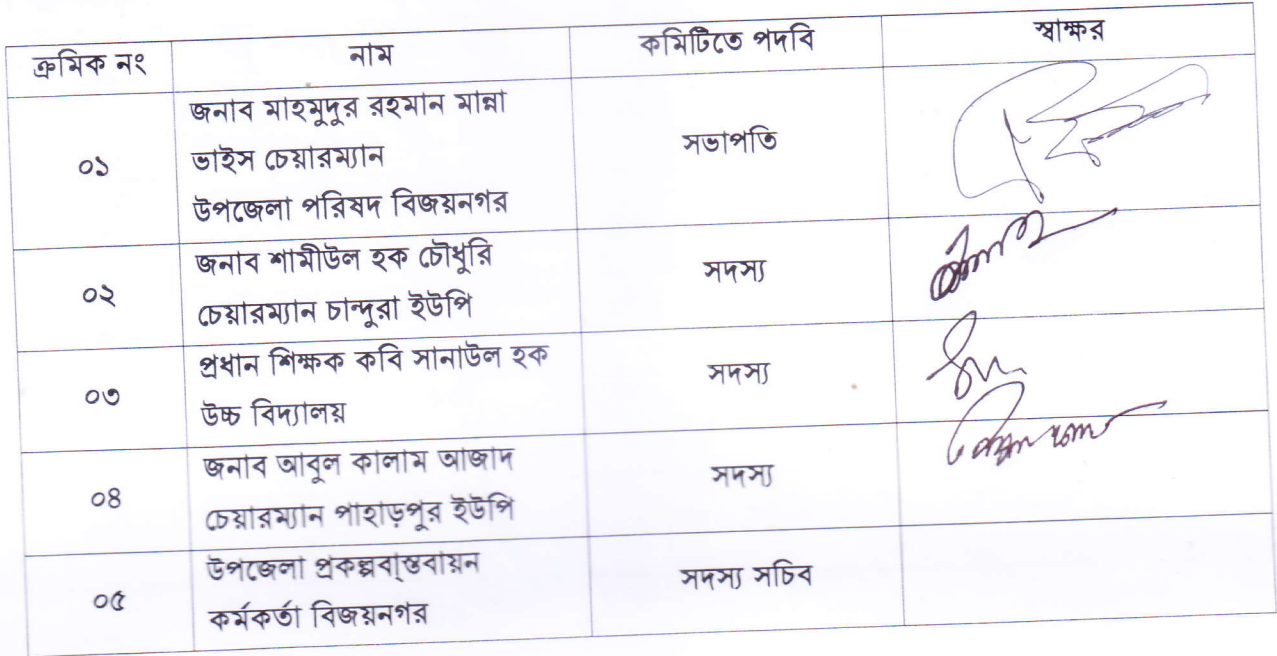 ক্রমিক নং নাম কমিটিতে পদবি স্বাক্ষর
জনাব মাহমুদুর রহমান মান্না
০১ ভাইস চেয়ারম্যান সভাপতি
উপজেলা পরিষদ বিজয়নগর
জনাব শামীউল হক চৌধুরি
০২ চেয়ারম্যান চান্দুরা ইউপি সদস্য
প্রধান শিক্ষক কবি সানাউল হক
০৩ উচ্চ বিদ্যালয় সদস্য
জনাব আবুল কালাম আজাদ
০৪ চেয়ারম্যান পাহাড়পুর ইউপি সদস্য
উপজেলা প্রকল্পবাস্তবায়ন
০৫ কর্মকর্তা বিজয়নগর সদস্য সচিব